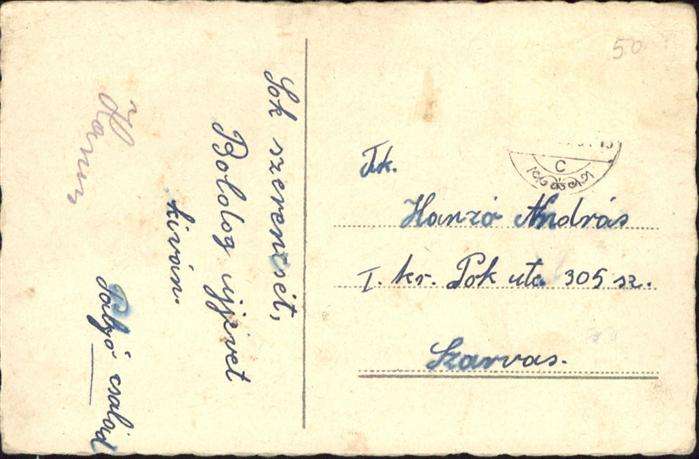 Sok szerencsét,
Boldog ujévet
kiván.
család
50
Tk.
Hanzó András
I. kr. Pok utca 305 sz.
Szarvas.
C